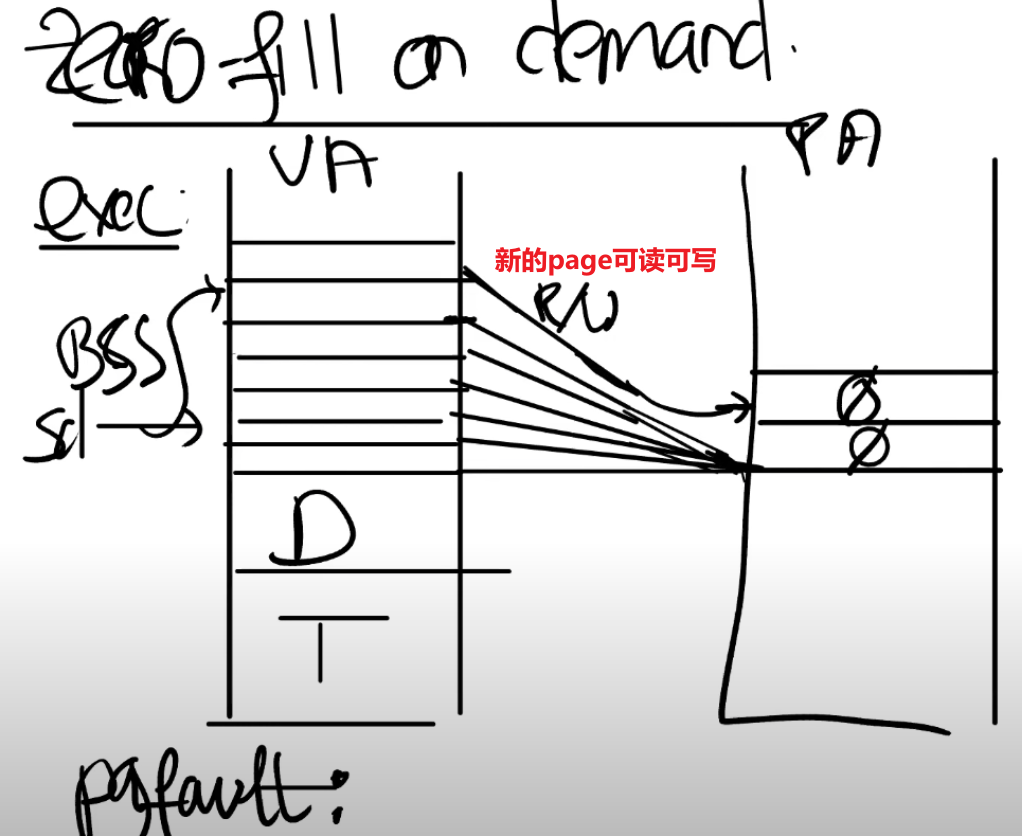 zero-fill on demand.
VA
PA
exec:
新的page可读可写
R/W
BSS
0
0
D
T
pgfault: